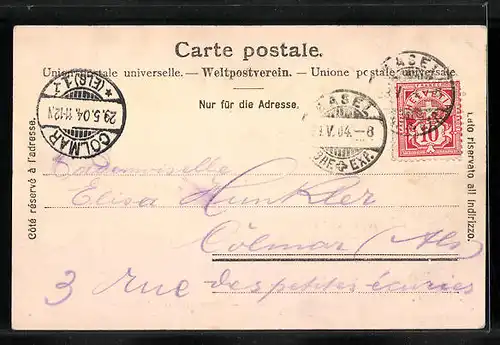 Carte postale.
Union postale universelle. — Weltpostverein. — Unione postale universale
Nur für die Adresse.
Côté réservé à l'adresse.
Lato riservato all indirizzo.
COLMAR
29.5.04.11-12V
*(ELS.)1
BASEL
V.04.-8
EXP.
BASEL
HELVETIA
10
Mademoiselle
Elisa Hunkler
Colmar (Als)
3 rue des petites écuries